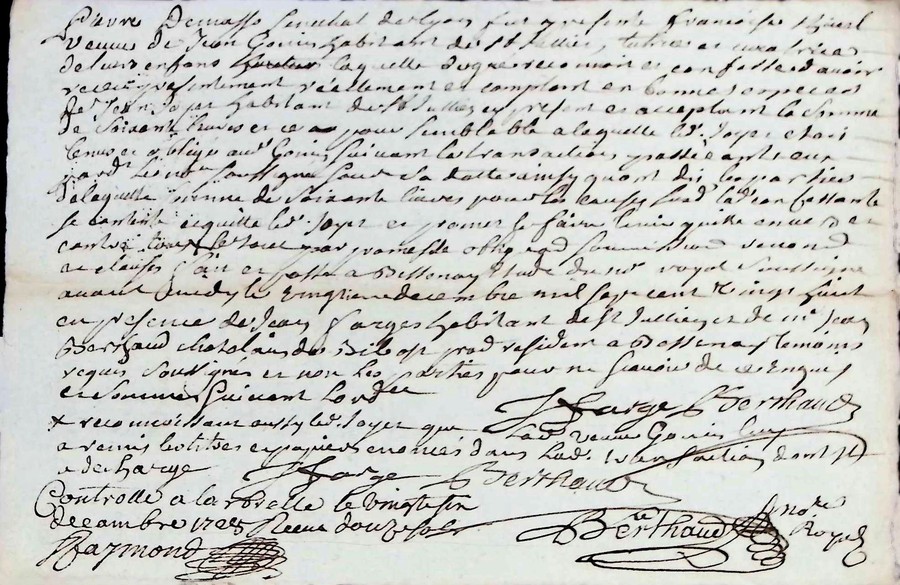 pierre Demasso senechal de Lyon fut presente francoise
veuve de Jean Gonin habitant de St Jullien, tutrice et curatrice
de leurs enfans laquelle de gré reconnoit et confesse d'avoir
receu presentement réellement et comptant en bonnes especes
de Sr Jean Joyet habitant de St Jullien present et acceptant la somme
de Soixante livres et ce pour semblable a laquelle led. Joyet etoit
tenu et obligé aud. Gonin suivant la transaction passée
pard. le no.re soussigné sous sa datte ainsy quont dit les parties
de laquelle somme de Soixante livres pour les causes susd. lad. constante
se contente acquitte led. Joyet et promet le faire tenir quitte envers et
contre tous le tout par promesse oblig.
et clauses fait et passé a Bessenay etude du no.re royal soussigné
avant midy le vingtieme decembre mil sept cent vingt huit
en presence de Jean farges habitant de St Jullien et de m.e Jean
Berthaud chatelain de resident a Bessenay temoins
requis soussignés et non les parties pour ne scavoir de ce enquis
et sommés suivant lord.ce
J farge Berthaud
+ reconnoissant aussy led. Joyet que lad. veuve Gonin luy
a remis les titres et papiers enoncés dans lad. transaction dont il
a decharge
J farge Berthaud
Controllé a la brelle le vingt
decembre 1728 Receu douze sols
Raymond
Berthaud no.re Royal